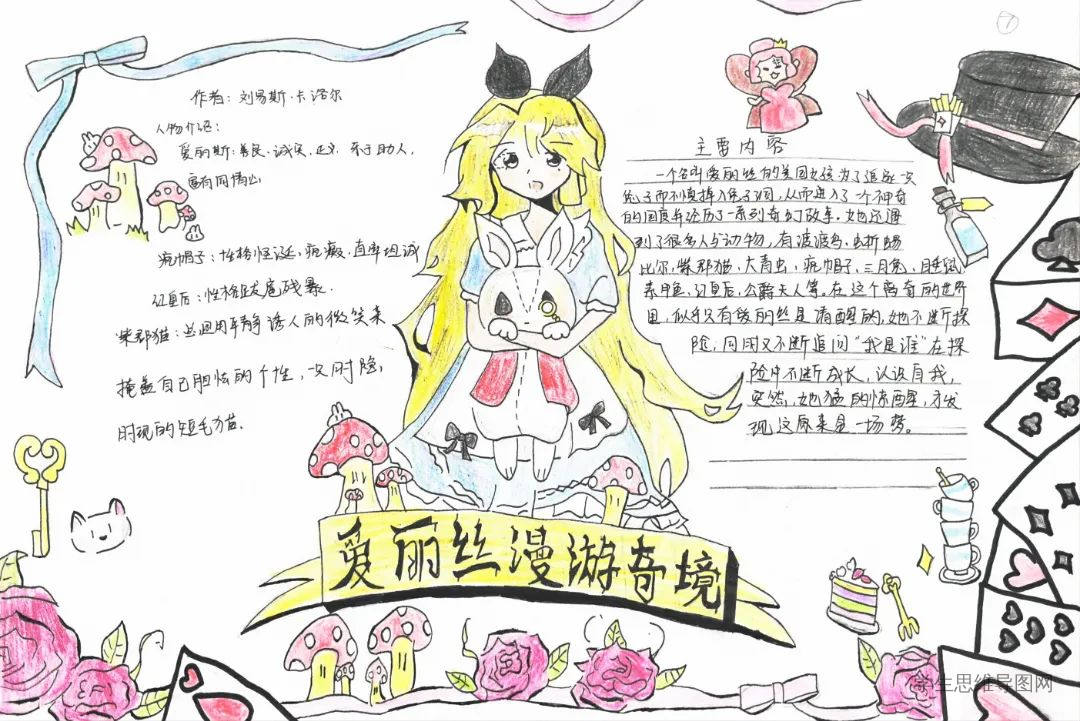 ⑦
作者：刘易斯·卡洛尔
人物介绍：
爱丽斯：善良、诚实、正义、乐于助人，
富有同情心
疯帽子：性格怪诞，疯癫，直率坦诚
红皇后：性格跋扈残暴.
柴郡猫：总用平静诱人的微笑来
掩盖自己胆怯的个性，一只时隐
时现的短毛猫.
主要内容
一个名叫爱丽丝的英国女孩为了追逐一只
兔子而不慎掉入兔子洞，从而进入了一个神奇
的国度并经历了一系列奇幻故事。她还遇
到了很多人与动物，有渡渡鸟、蜥蜴
比尔、柴郡猫、大青虫、疯帽子、三月兔、睡鼠
素甲鱼、红皇后、公爵夫人等。在这个离奇的世界
里，似乎只有爱丽丝是清醒的，她不断探
险，同时又不断追问“我是谁”在探
险中不断成长，认识自我，
突然，她猛的惊醒，才发
现这原来是一场梦。
爱丽丝漫游奇境
学生思维导图网